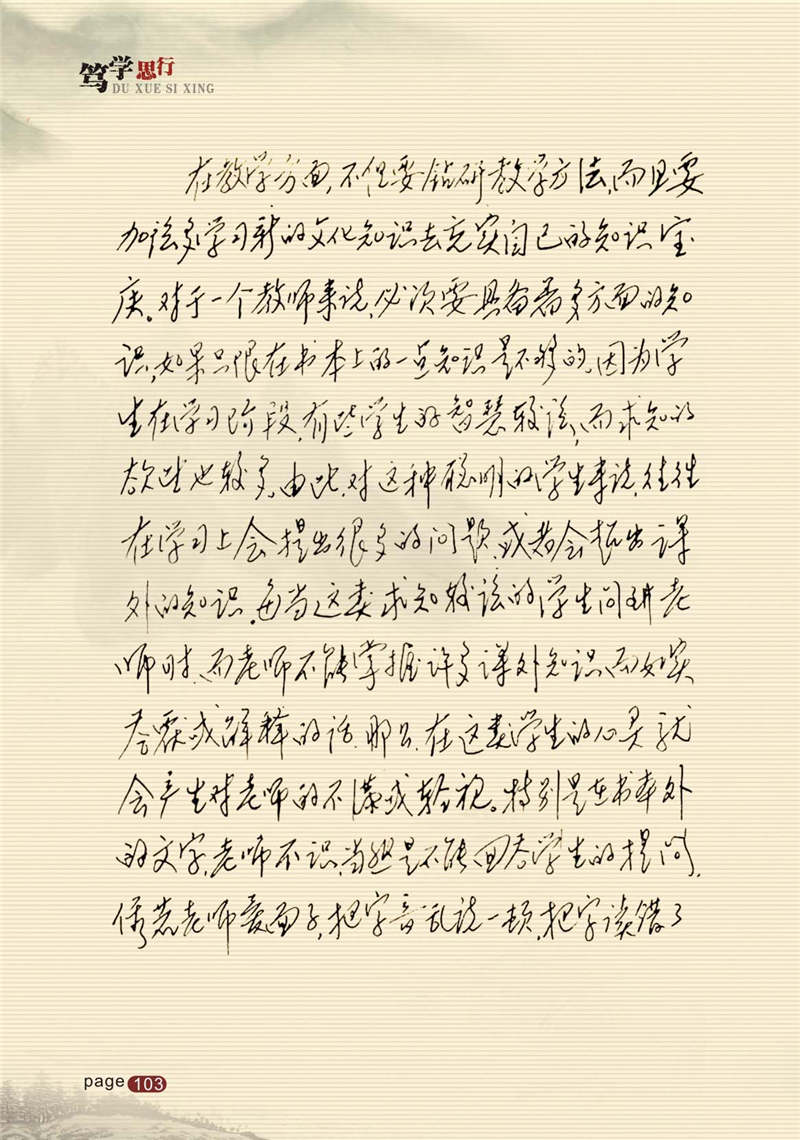 笃学思行
DU XUE SI XING
在教学方面,不但要钻研教学方法,而且要
加强多学习新的文化知识去充实自己的知识宝
库。对于一个教师来说,必次要具备着多方面的知
识,如果只限在书本上的一点知识是不够的,因为学
生在学习阶段,有些学生的智慧较强,而求知的
欲望也较多。由此,对这种聪明的学生来说,往往
在学习上会提出很多的问题,或者会提出课
外的知识。每当这类求知较强的学生问讲老
师时,而老师不能掌握许多课外知识而如实
答案或解释的话,那么,在这类学生的心灵就
会产生对老师的不满或轻视。特别是在书本外
的文字,老师不识,当然是不能回答学生的提问,
倘若老师爱面子,把字音乱说一顿,把字读错了
page 103